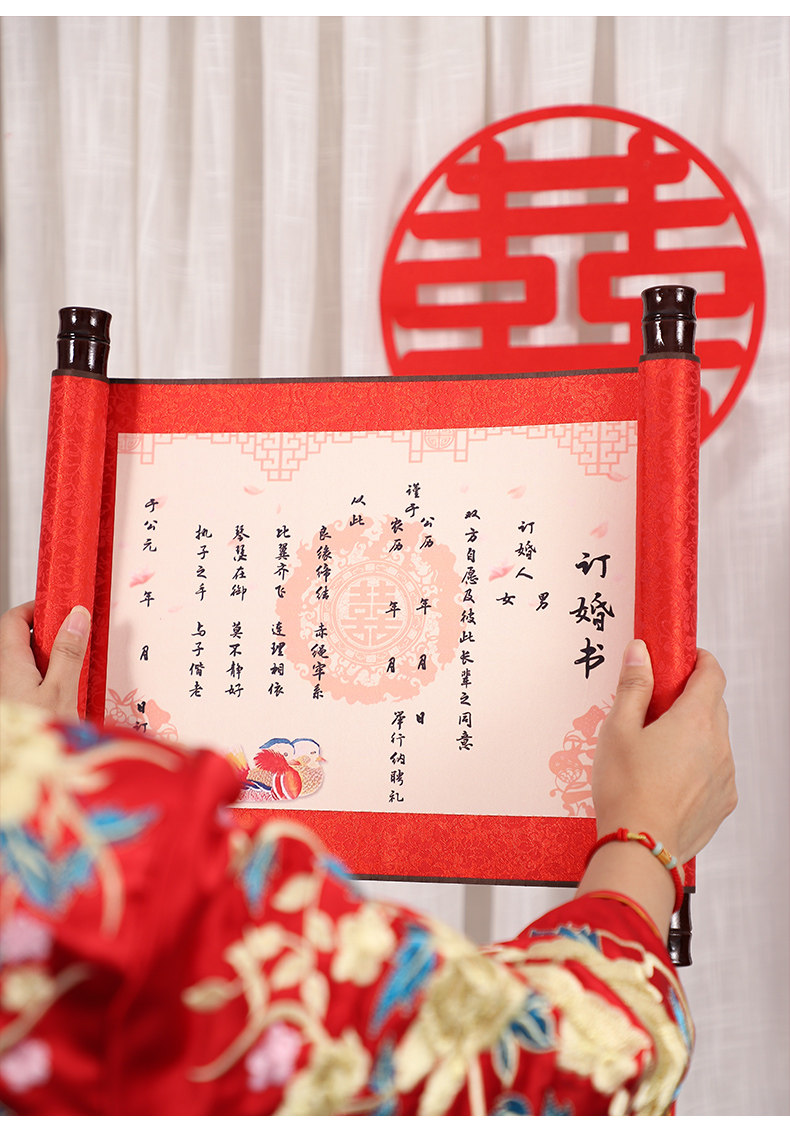 囍
订婚书
订婚人 男
女
双方自愿及彼此长辈之同意
谨于 公历 年 月 日
农历 年 月 举行纳聘礼
从此
良缘缔结 赤绳牢系
比翼齐飞 连理相依
琴瑟在御 莫不静好
执子之手 与子偕老
于公元 年 月 日订
囍